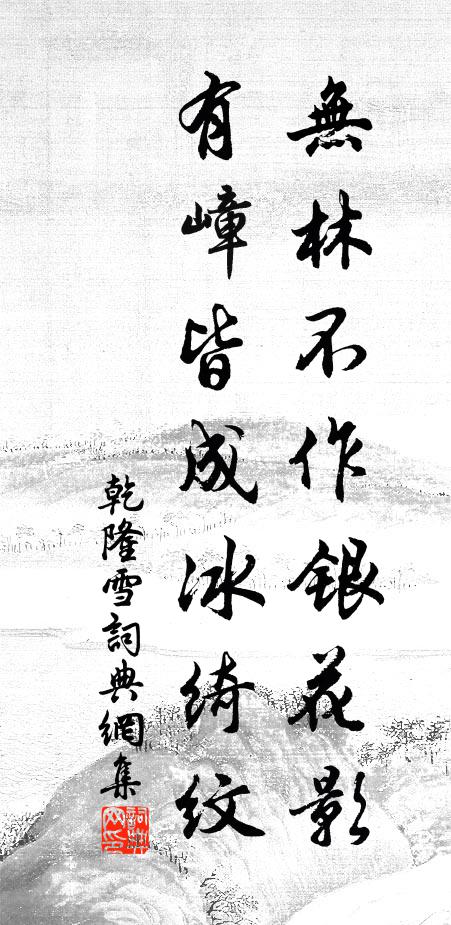 無林不作銀花影
有嶂皆成冰綺紋
乾隆雪詞典網集